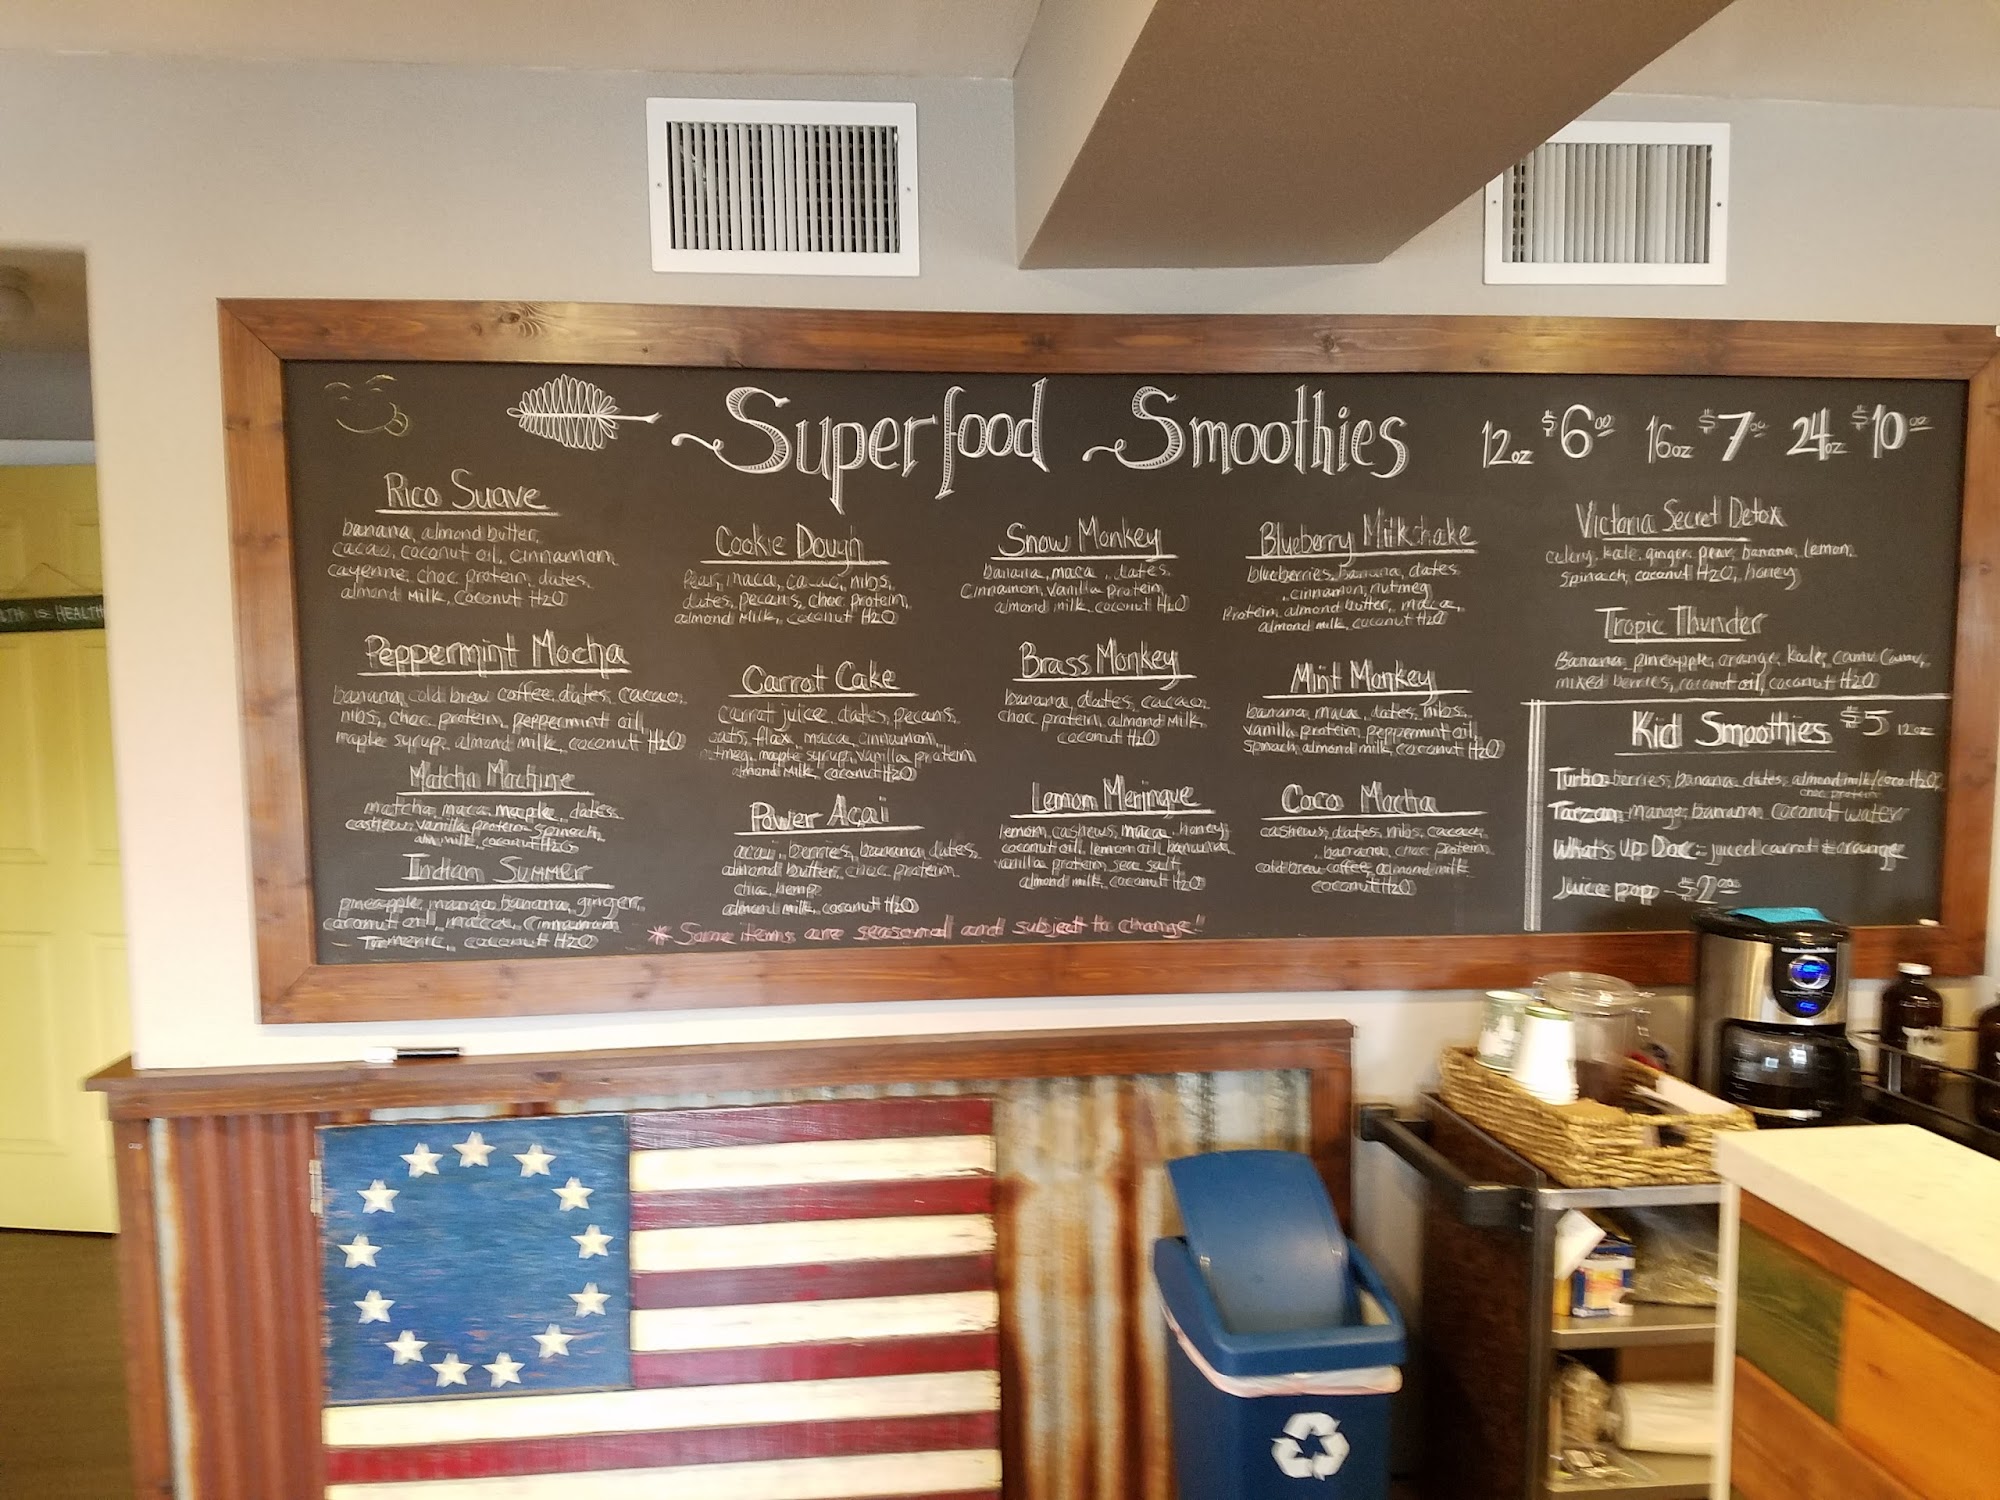 Superfood Smoothies
12oz $6.00 16oz $7.00 24oz $10.00
Rico Suave
banana, almond butter,
cacao, coconut oil, cinnamon,
cayenne, choc protein, dates,
almond milk, coconut H2O
Peppermint Mocha
banana, cold brew coffee, dates, cacao,
nibs, choc protein, peppermint oil,
maple syrup, almond milk, coconut H2O
Matcha Machine
matcha, maca, maple, dates,
cashew, vanilla protein, spinach,
milk, coconut H2O
Indian Summer
pineapple, mango, banana, ginger,
coconut oil, macca, cinnamon,
Turmeric, coconut H2O
Cookie Dough
Pear, maca, cacao, nibs,
dates, pecans, choc protein,
almond milk, coconut H2O
Carrot Cake
carrot juice, dates, pecans,
oats, flax, maca, cinnamon,
nutmeg, maple syrup, vanilla protein
almond milk, coconut H2O
Power Açai
acai, berries, banana, dates,
almond butter, choc protein,
chia, hemp
almond milk, coconut H2O
Snow Monkey
banana, maca, dates,
cinnamon, vanilla protein,
almond milk, coconut H2O
Brass Monkey
banana, dates, cacao,
choc protein, almond milk,
coconut H2O
Lemon Meringue
lemon, cashews, maca, honey,
coconut oil, lemon oil, banana,
vanilla protein, sea salt
almond milk, coconut H2O
Blueberry Milkshake
blueberries, banana, dates,
cinnamon, nutmeg
Protein, almond butter, maca,
almond milk, coconut H2O
Mint Monkey
banana, maca, dates, nibs,
vanilla protein, peppermint oil,
spinach, almond milk, coconut H2O
Coco Mocha
cashews, dates, nibs, cacao,
banana, choc protein,
cold brew coffee, almond milk
coconut H2O
Victoria Secret Detox
celery, kale, ginger, pear, banana, lemon,
spinach, coconut H2O, honey
Tropic Thunder
Banana, pineapple, orange, kale, camu camu,
mixed berries, coconut oil, coconut H2O
Kid Smoothies $5 12oz
Turbo- berries, banana, dates, almond milk/coco H2O,
choc protein
Tarzan- mango, banana, coconut water
Whats up Doc- juiced carrot & orange
Juice pop - $2.00
* Some items are seasonal and subject to change!!
LTH is HEALTH